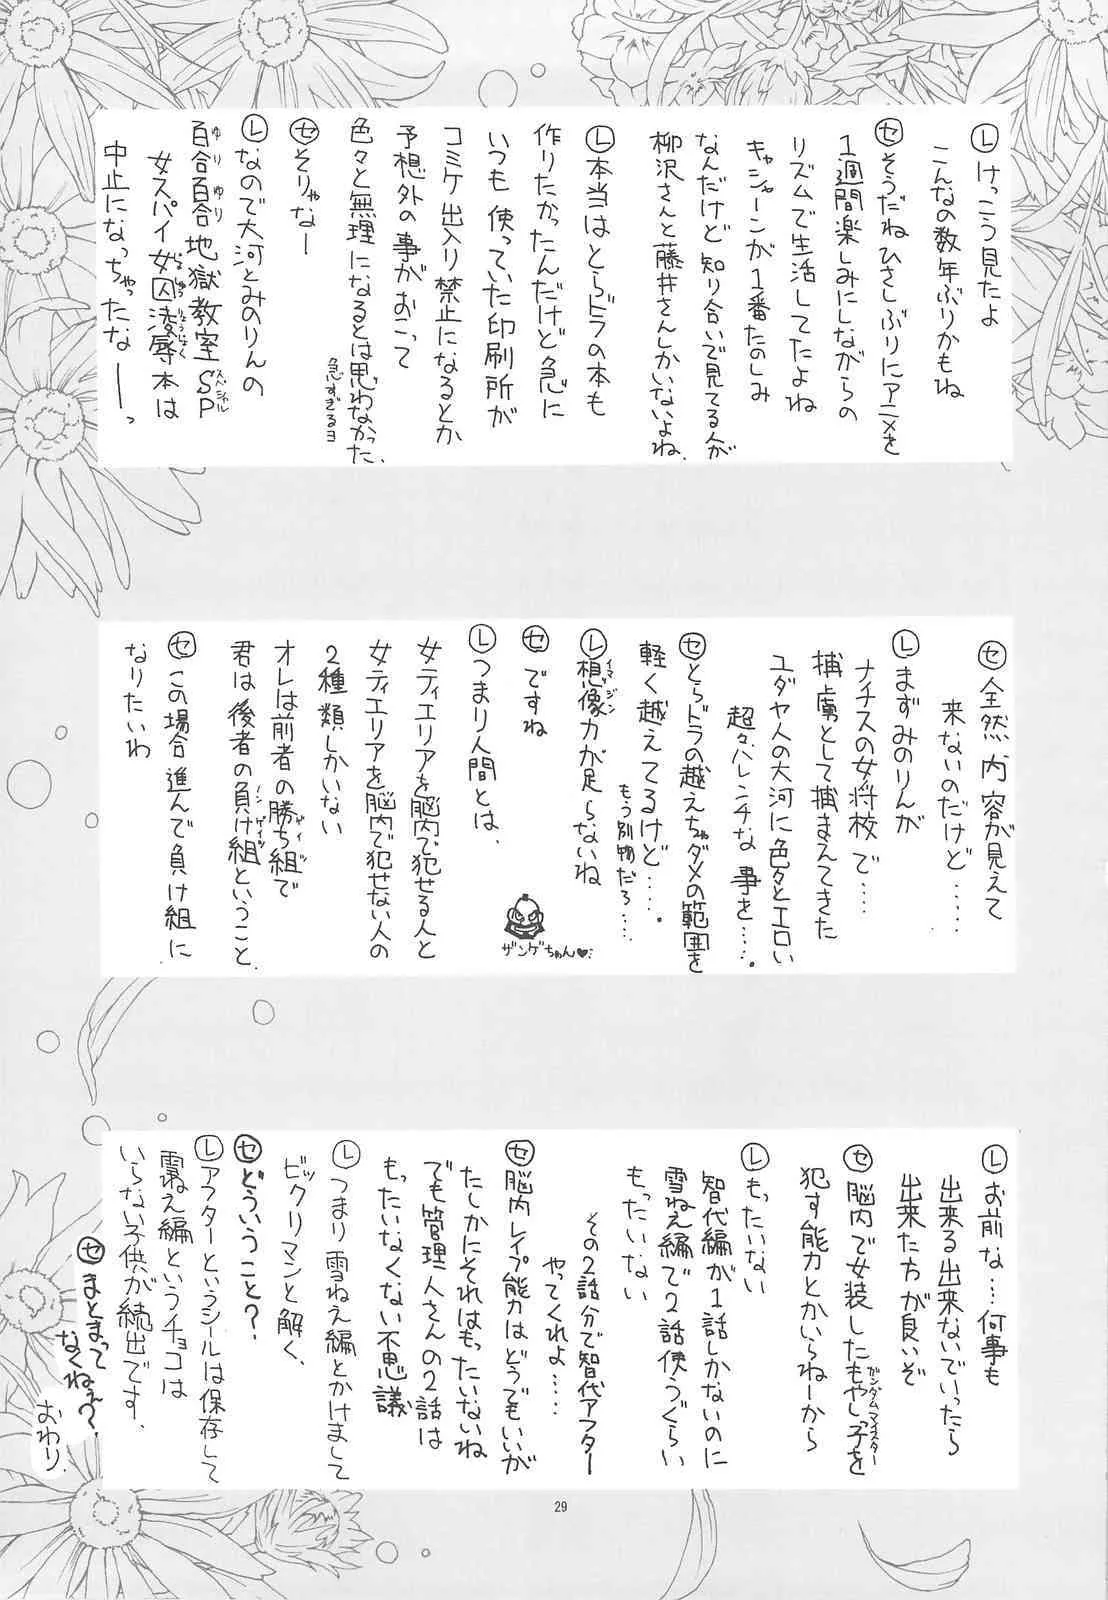 Ⓛけっこう見たよ
こんなの数年ぶりかもね
㋝そうだねひさしぶりにアニメを
1週間楽しみにしながらの
リズムで生活してたよね
キャシャーンが1番たのしみ
なんだけど知り合いで見てる人が
柳沢さんと藤井さんしかいないよね
Ⓛ本当はとらドラの本も
作りたかったんだけど急に
いつも使っていた印刷所が
コミケ出入り禁止になるとか
予想外の事がおこって
色々と無理になるとは思わなかった
急すぎるヨ
㋝そりゃなー
Ⓛなので大河とみのりんの
百合百合地獄教室SP
ゆりゆり
スペシャル
女スパイ女囚凌辱本は
じょしゅうりょうじょく
中止になっちゃったなーーっ
㋝全然内容が見えて
来ないのだけど……
Ⓛまずみのりんが
ナチスの女将校で……
捕虜として捕まえてきた
ユダヤ人の大河に色々とエロい
超々ハレンチな事を……。
㋝とらドラの越えちゃダメの範囲を
軽く越えてるけど……。
もう別物だろ……
Ⓛ想像力が足らないね
イマジン
㋝ですね
ザンゲちゃん♥
Ⓛつまり人間とは、
女ティエリアを脳内で犯せる人と
女ティエリアを脳内で犯せない人の
2種類しかいない
オレは前者の勝ち組で
ゲイツ
君は後者の負け組ということ
ノンゲイツ
㋝この場合進んで負け組に
なりたいわ
Ⓛお前な…何事も
出来る出来ないでいったら
出来た方が良いぞ
㋝脳内で女装したもやしっ子を
ガンダムマイスター
犯す能力とかいらねーから
Ⓛもったいない
智代編が1話しかないのに
雪ねえ編で2話使つぐらい
もったいない
その2話分で智代アフター
やってくれよ……
㋝脳内レイプ能力はどうでもいいが
たしかにそれはもったいないね
でも管理人さんの2話は
もったいなくない不思議
Ⓛつまり雪ねえ編とかけまして
ビックリマンと解く、
㋝どういうこと?
Ⓛアフターというシールは保存して
雪ねえ編というチョコは
いらない子供が続出です。
㋝まとまって
なくねぇ?
おわり.
29